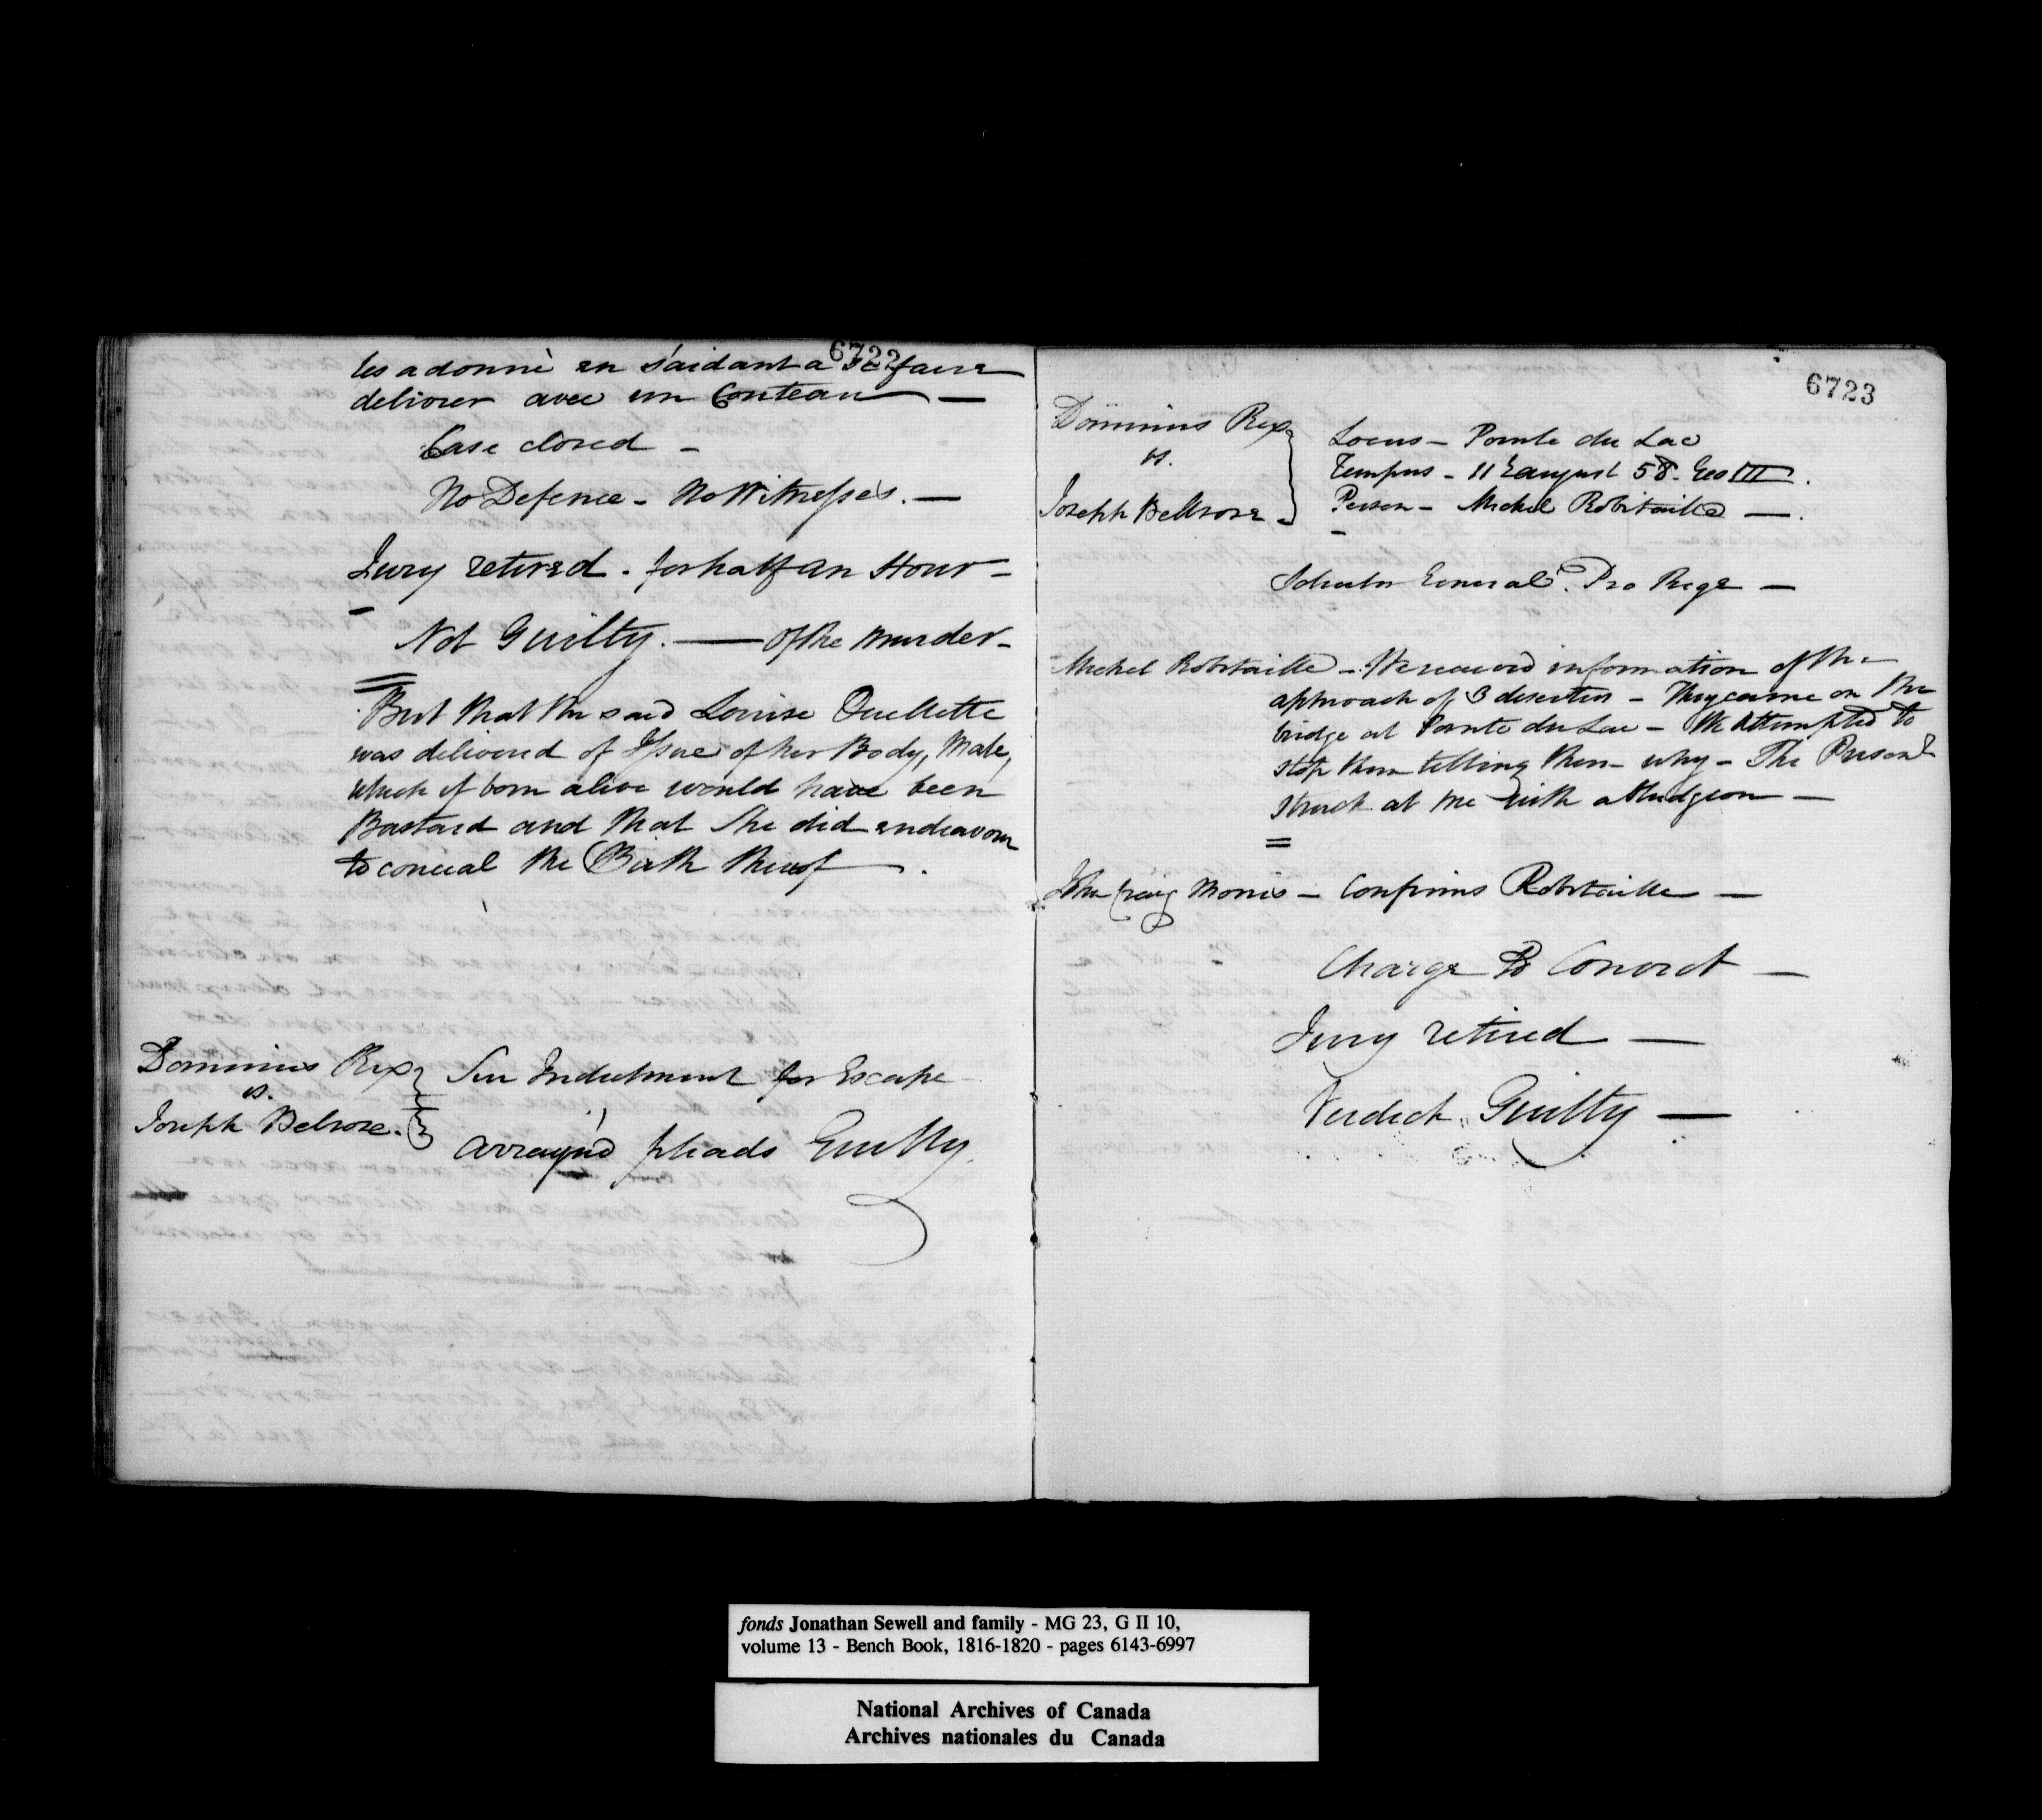 6722
les a donné en s'aidant a se faire
delivrer avec un Couteau —
Case closed —
No Defence — No Witnesses. —
Jury retired. for half an Hour —
Not Guilty. — of the murder —
But that the said Louise Ouellette
was delivered of Issue of her Body, Male,
which if born alive would have been
Bastard and that she did endeavour
to conceal the Birth thereof — .
Dominus Rex
vs.
Joseph Belrose.
Sur Indictment for Escape
arrayned pleads Guilty
6723
Dominus Rex
vs.
Joseph Bellrose
Locus — Pointe du Lac
Tempus — 11 August 58. Geo III.
Person — Michel Robitaille —.
Solicitor General. Pro Rege —
Michel Robitaille — We received information of the
approach of 3 deserters — They came on the
bridge at Pointe du Lac — We attempted to
stop them telling them why — The Prisonr
struck at me with a bludgeon —
John Craig Morris — Confirms Robitaille —
Charge to Convict —
Jury retired —
Verdict. Guilty —
fonds Jonathan Sewell and family - MG 23, G II 10,
volume 13 - Bench Book, 1816-1820 - pages 6143-6997
National Archives of Canada
Archives nationales du Canada